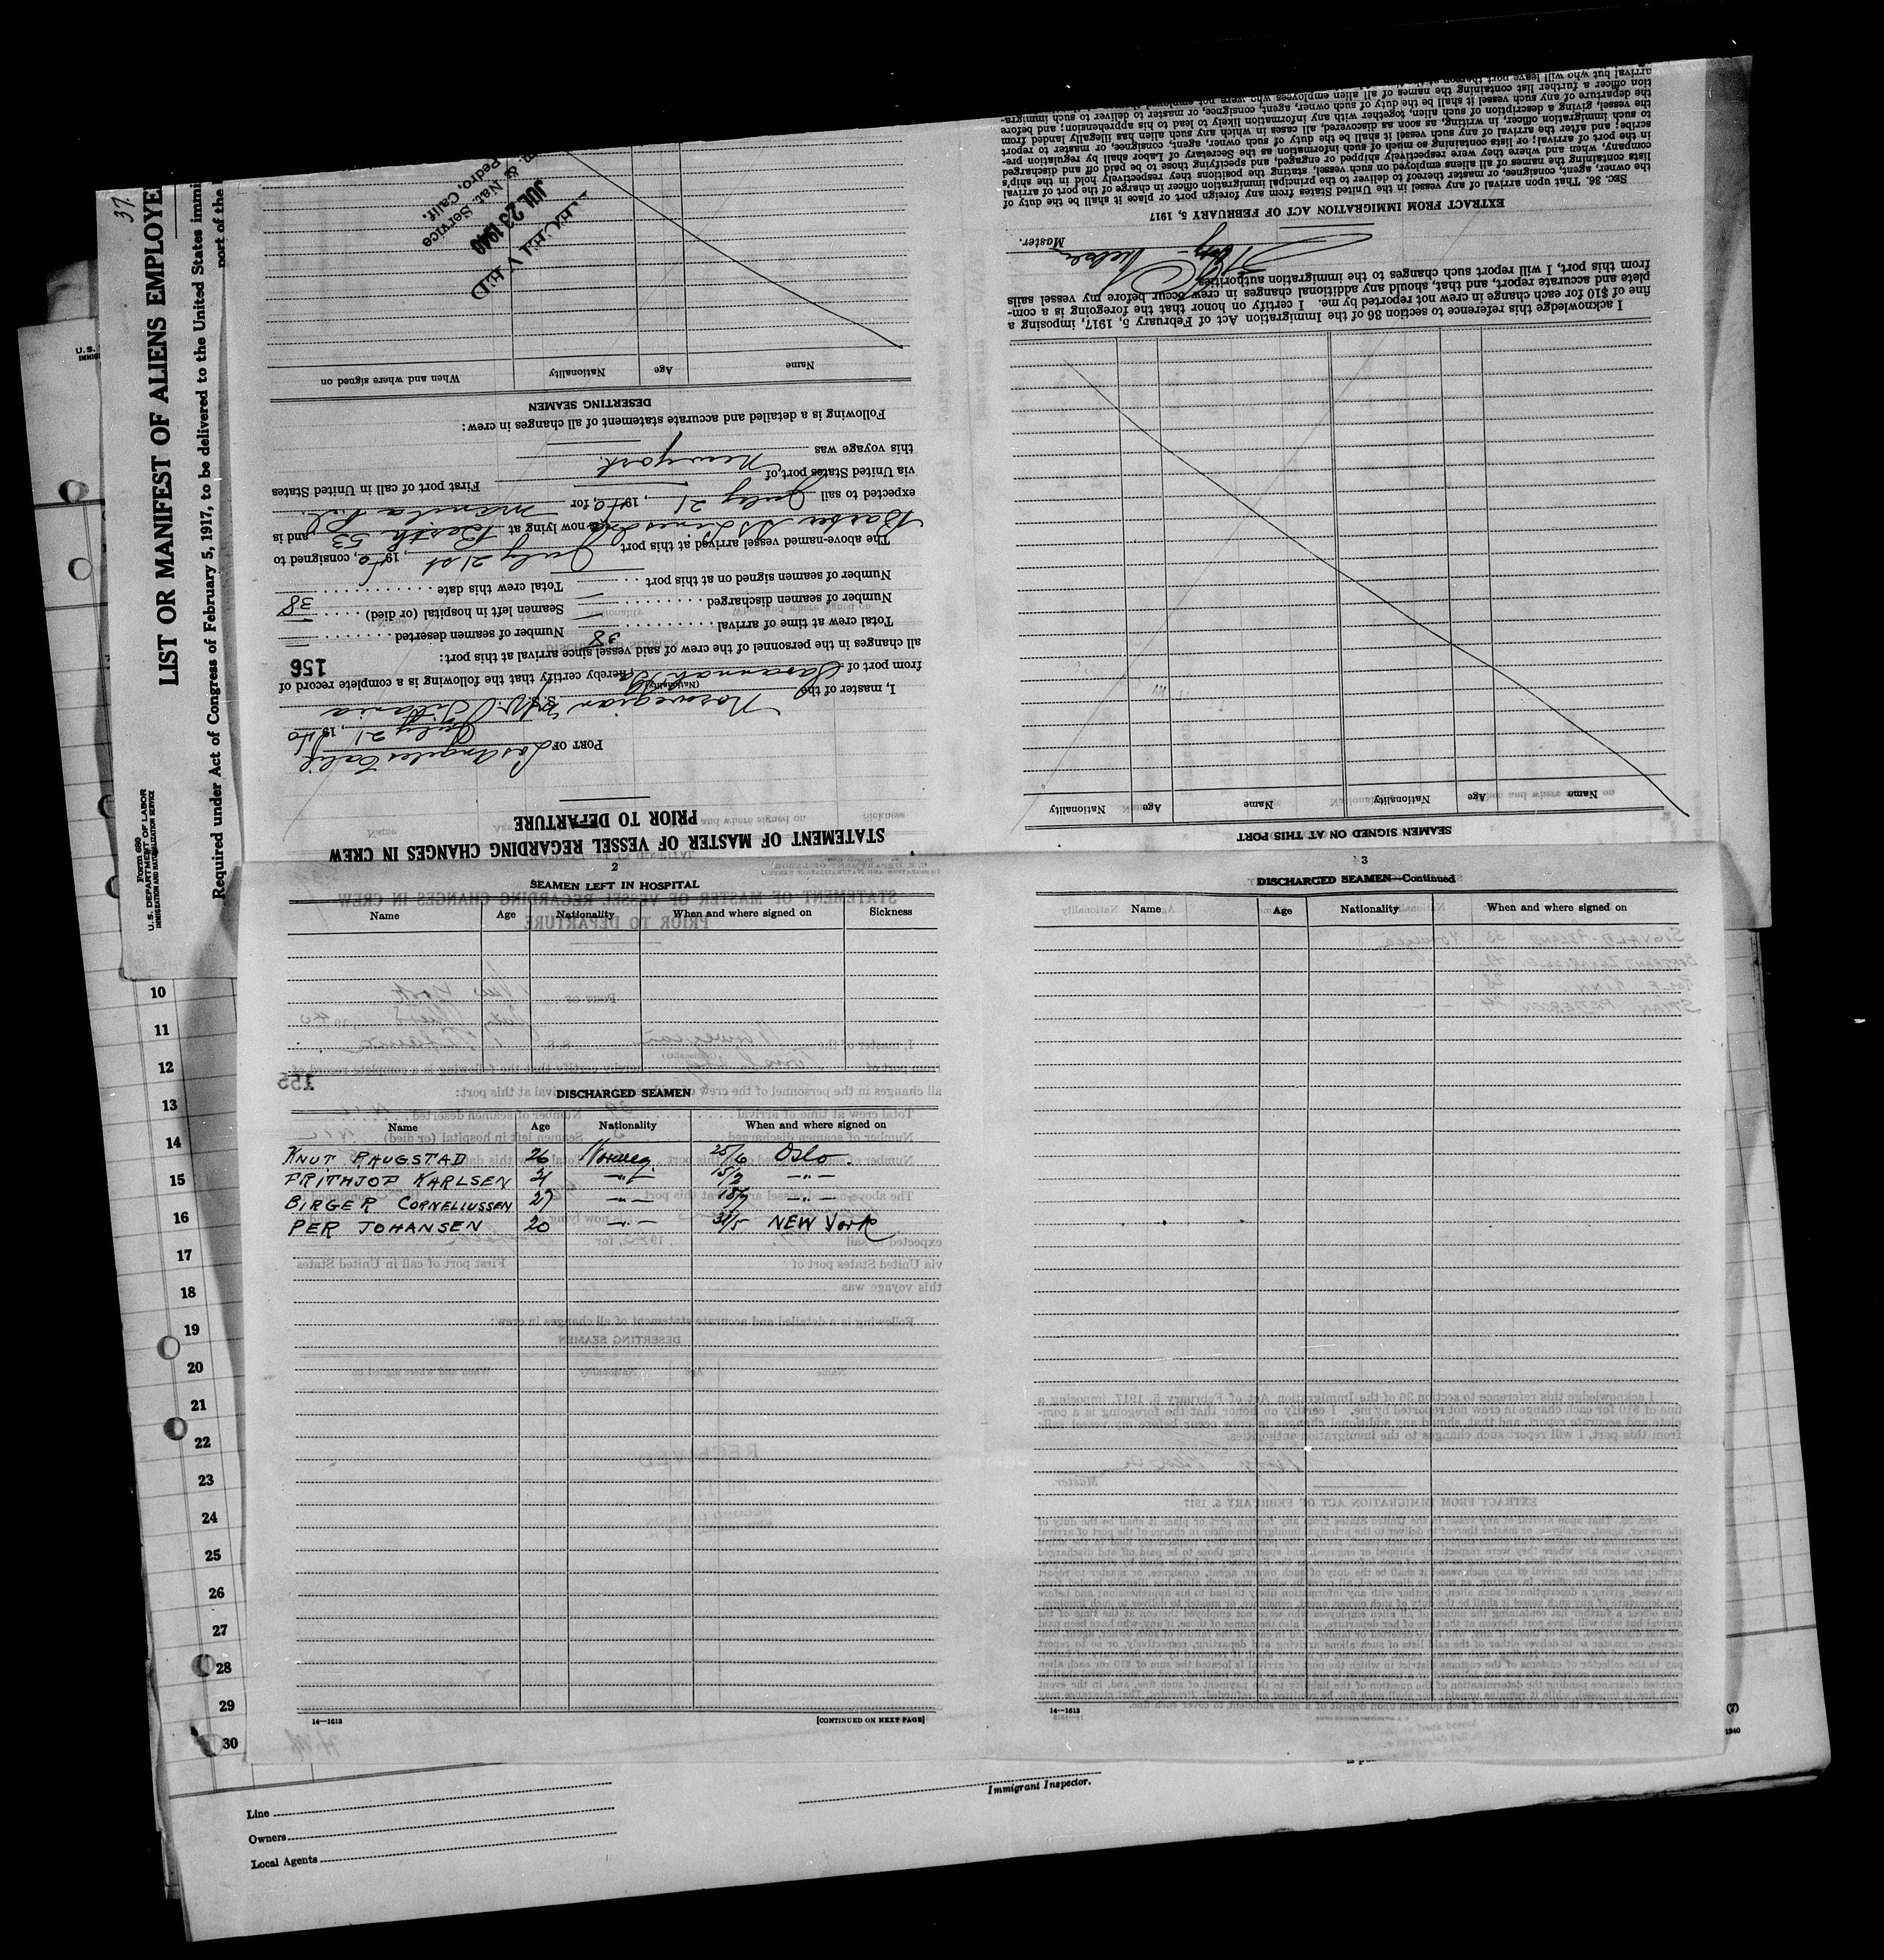 37.
LIST OR MANIFEST OF ALIENS EMPLOYE
Required under Act of Congress of February 5, 1917, to be delivered to the United States immi
port of the
Form 680
U.S. DEPARTMENT OF LABOR
IMMIGRATION AND NATURALIZATION SERVICE
STATEMENT OF MASTER OF VESSEL REGARDING CHANGES IN CREW
PRIOR TO DEPARTURE
PORT OF Los Angeles Calif
July 21, 1940
I, master of the Norwegian S.S. Titania
(Nationality)
from port of Savannah hereby certify that the following is a complete record of
all changes in the personnel of the crew of said vessel since arrival at this port:
156
Total crew at time of arrival 38 Number of seamen deserted
Number of seamen discharged Seamen left in hospital (or died)
Number of seamen signed on at this port Total crew this date 38
The above-named vessel arrived at this port July 21st, 1940, consigned to
Barber SS Lines and is now lying at Berth 53 and is
expected to sail July 21, 1940, for Manila P.I.
via United States port of First port of call in United States
this voyage was New york.
Following is a detailed and accurate statement of all changes in crew:
DESERTING SEAMEN
Name Age Nationality When and where signed on
RECEIVED
JUL 23 1940
& Nat. Service
Pedro, Calif.
SEAMEN SIGNED ON AT THIS PORT
Name Age Nationality Name Age Nationality
I acknowledge this reference to section 36 of the Immigration Act of February 5, 1917, imposing a
fine of $10 for each change in crew not reported by me. I certify on honor that the foregoing is a com-
plete and accurate report, and that, should any additional changes in crew occur before my vessel sails
from this port, I will report such changes to the immigration authorities.
Master.
EXTRACT FROM IMMIGRATION ACT OF FEBRUARY 5, 1917
SEC. 36. That upon arrival of any vessel in the United States from any foreign port or place it shall be the duty of
the owner, agent, consignee, or master thereof to deliver to the principal immigration officer in charge of the port of arrival
lists containing the names of all aliens employed on such vessel, stating the positions they respectively hold in the ship's
company, when and where they were respectively shipped or engaged, and specifying those to be paid off and discharged
in the port of arrival; or lists containing so much of such information as the Secretary of Labor shall by regulation pre-
scribe; and after the arrival of any such vessel it shall be the duty of such owner, agent, consignee, or master to report
to such immigration officer, in writing, as soon as discovered, all cases in which any such alien has illegally landed from
the vessel, giving a description of such alien, together with any information likely to lead to his apprehension; and before
the departure of any such vessel it shall be the duty of such owner, agent, consignee, or master to deliver to such immigra-
tion officer a further list containing the names of all alien employees who were not employed
arrival but who will leave port
2
SEAMEN LEFT IN HOSPITAL
Name Age Nationality When and where signed on Sickness
DISCHARGED SEAMEN
Name Age Nationality When and where signed on
KNUT RAUGSTAD 26 Norweg. 25/6 Oslo.
FRITHJOF KARLSEN 21 —"— 15/2 —"—
BIRGER CORNELIUSSEN 27 —"— 18/7 —"—
PER JOHANSEN 20 —"— 31/5 NEW York
14—1613
[CONTINUED ON NEXT PAGE]
3
DISCHARGED SEAMEN—Continued
Name Age Nationality When and where signed on
14—1613
10
11
12
13
14
15
16
17
18
19
20
21
22
23
24
25
26
27
28
29
30
Line
Owners
Local Agents
Immigrant Inspector.